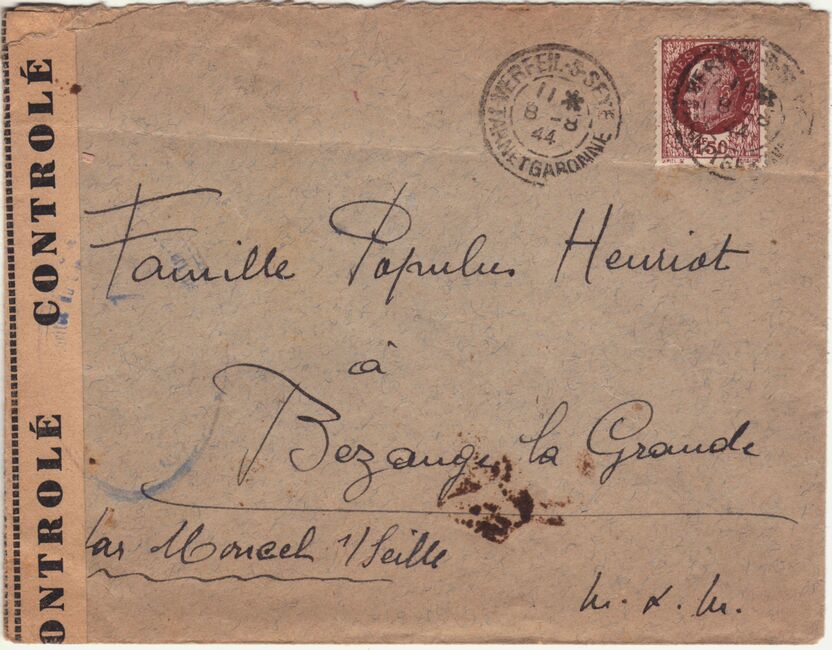 CONTROLÉ
CONTROLÉ
VERFEIL-S-SEYE
11 *
8 -8
44
TARNETGARONNE
1F50
Famille Populus Henriot
à
Bezange la Grande
par Moncel s/Seille
M. & M.